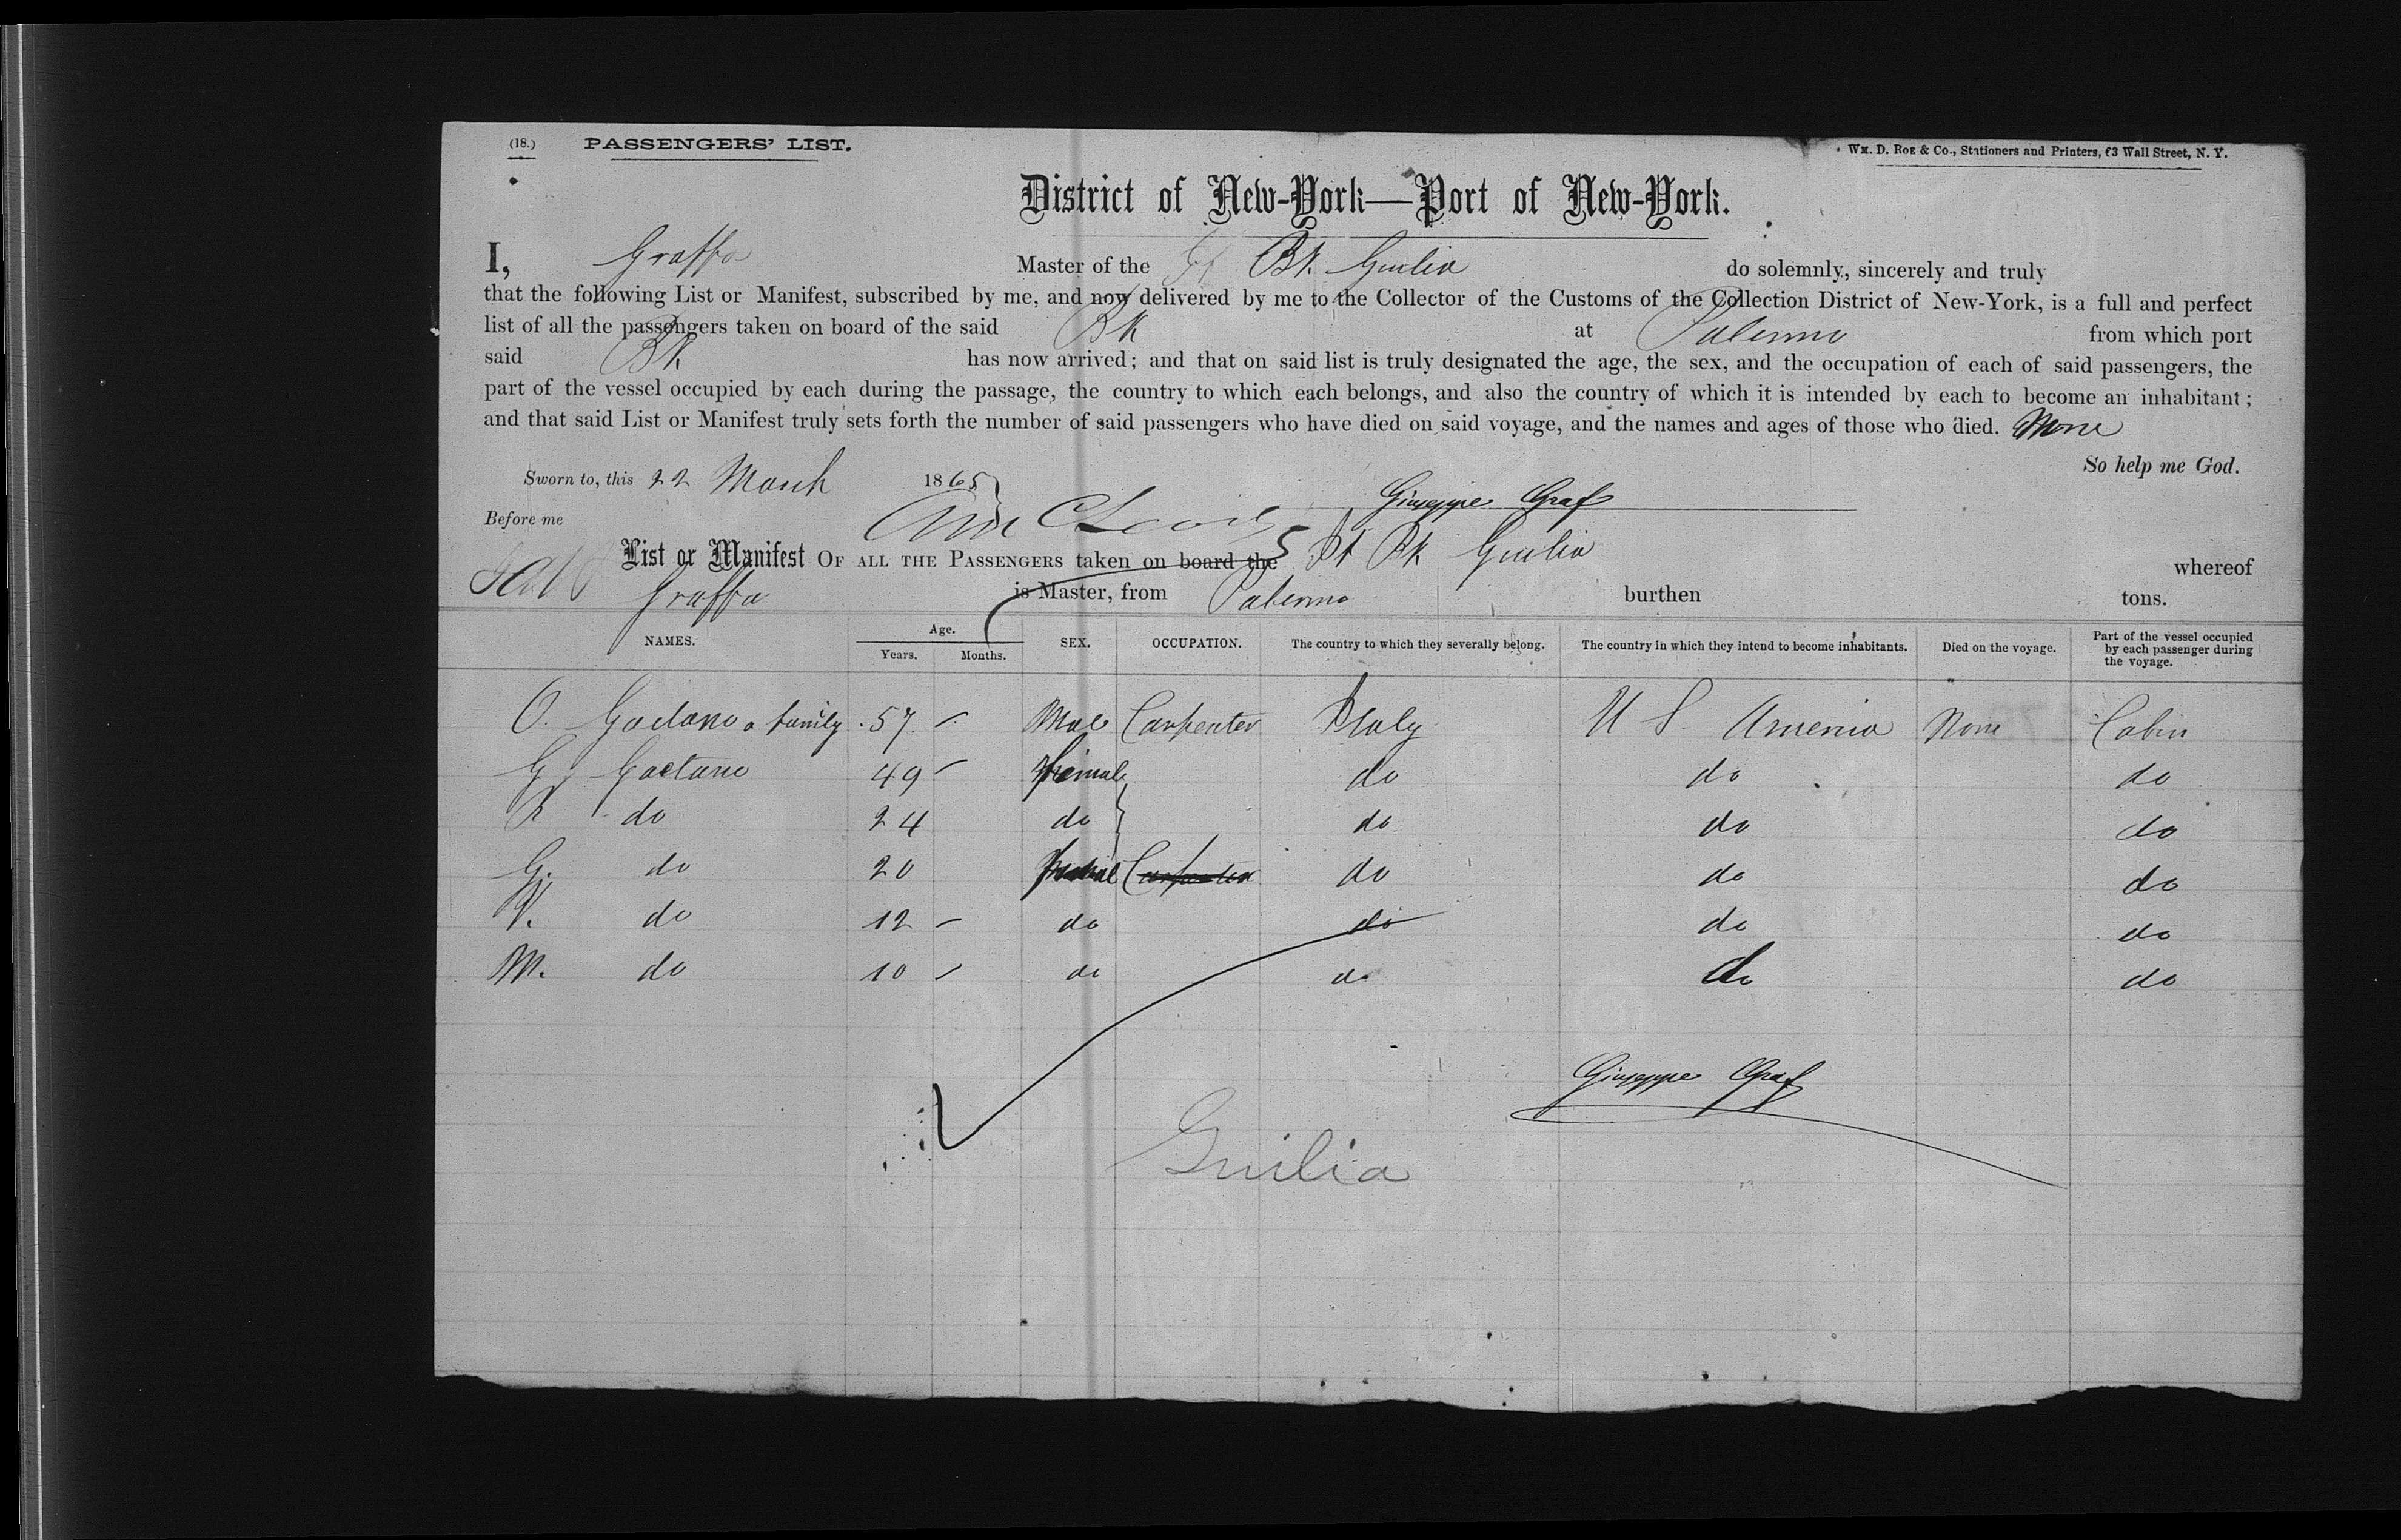 (18.) PASSENGERS' LIST.
WM. D. ROE & Co., Stationers and Printers, 63 Wall Street, N. Y.
District of New-York—Port of New-York.
I, Graffo Master of the Bk Giulia do solemnly, sincerely and truly
that the following List or Manifest, subscribed by me, and now delivered by me to the Collector of the Customs of the Collection District of New-York, is a full and perfect
list of all the passengers taken on board of the said Bk at Palermo from which port
said Bk has now arrived; and that on said list is truly designated the age, the sex, and the occupation of each of said passengers, the
part of the vessel occupied by each during the passage, the country to which each belongs, and also the country of which it is intended by each to become an inhabitant;
and that said List or Manifest truly sets forth the number of said passengers who have died on said voyage, and the names and ages of those who died. None
So help me God.
Sworn to, this 22 March 1865
Giuseppe Graf
Before me
List or Manifest OF ALL THE PASSENGERS taken on board the It Bk Giulia whereof
Graffo is Master, from Palermo burthen tons.
NAMES. Age. Years. Months. SEX. OCCUPATION. The country to which they severally belong. The country in which they intend to become inhabitants. Died on the voyage. Part of the vessel occupied by each passenger during the voyage.
O. Gaetano & family 57 - Male Carpenter Italy U S. America None Cabin
G. Gaetano 49 - Female do do do
R do 24 do do do do
G. do 20 Carpenter do do do
V. do 12 - do do do do
M. do 10 - do do do do
Giuseppe Graf
Guilia